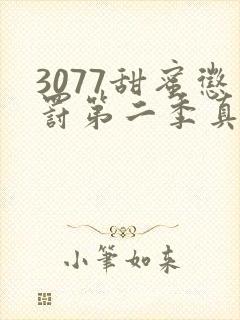 3077甜蜜惩
罚第二季真
小筆如来